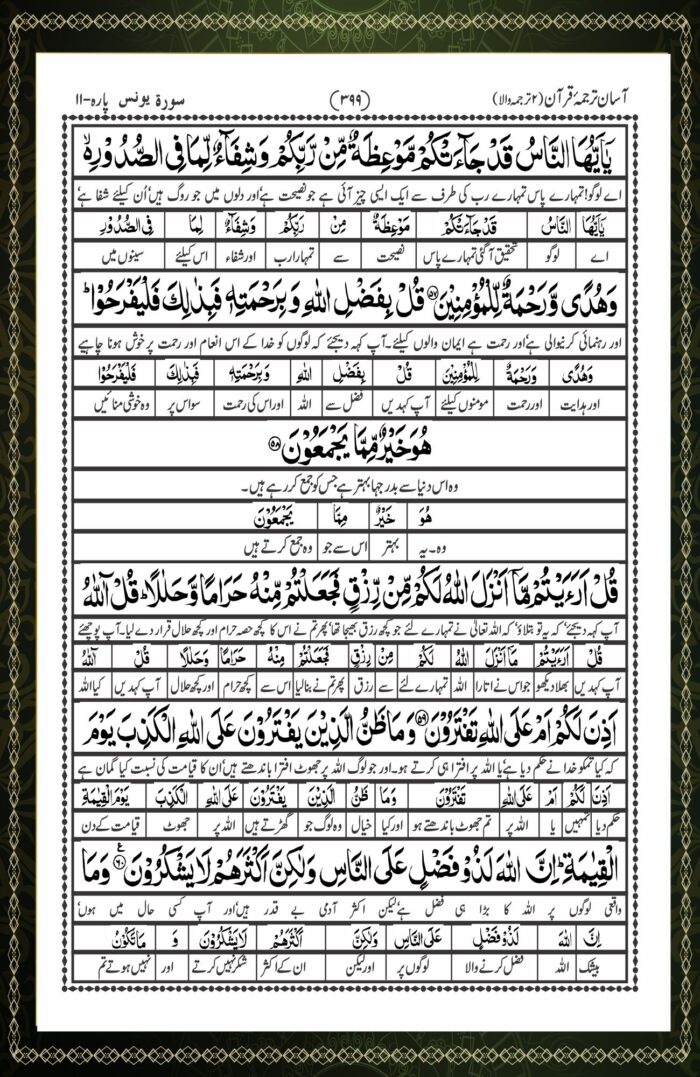 آسان ترجمۂ قرآن (۲ ترجمہ والا) (۳۹۹) سورة یونس پارہ-۱۱
يٰۤاَيُّهَا النَّاسُ قَدْ جَآءَتْكُمْ مَّوْعِظَةٌ مِّنْ رَّبِّكُمْ وَشِفَآءٌ لِّمَا فِى الصُّدُوْرِ۬ۙ
اے لوگو! تمہارے پاس تمہارے رب کی طرف سے ایک ایسی چیز آئی ہے جو نصیحت ہے اور دلوں میں جو روگ ہیں اُن کیلئے شفا ہے
يٰۤاَيُّهَا النَّاسُ قَدْ جَآءَتْكُمْ مَوْعِظَةٌ مِنْ رَبِّكُمْ وَشِفَآءٌ لِمَا فِى الصُّدُوْرِ
اے لوگو تحقیق آ گئی تمہارے پاس نصیحت سے تمہارا رب اور شفاء اس کیلئے سینوں میں
وَهُدًى وَّرَحْمَةٌ لِّلْمُؤْمِنِيْنَ ۵۷ قُلْ بِفَضْلِ اللّٰهِ وَبِرَحْمَتِهٖ فَبِذٰلِكَ فَلْيَفْرَحُوْا ؕ
اور رہنمائی کرنیوالی ہے اور رحمت ہے ایمان والوں کیلئے۔ آپ کہہ دیجئے کہ لوگوں کو خدا کے اس انعام اور رحمت پر خوش ہونا چاہیے
وَهُدًى وَرَحْمَةٌ لِلْمُؤْمِنِيْنَ قُلْ بِفَضْلِ اللّٰهِ وَبِرَحْمَتِهٖ فَبِذٰلِكَ فَلْيَفْرَحُوْا
اور ہدایت اور رحمت مومنوں کیلئے آپ کہدیں فضل سے اللہ اور اس کی رحمت سو اس پر وہ خوشی منائیں
هُوَ خَيْرٌ مِّمَّا يَجْمَعُوْنَ ۵۸
وہ اس دنیا سے بدرجہا بہتر ہے جس کو جمع کر رہے ہیں۔
هُوَ خَيْرٌ مِمَّا يَجْمَعُوْنَ
وہ۔یہ بہتر اس سے جو وہ جمع کرتے ہیں
قُلْ اَرَءَيْتُمْ مَّاۤ اَنْزَلَ اللّٰهُ لَكُمْ مِّنْ رِّزْقٍ فَجَعَلْتُمْ مِّنْهُ حَرَامًا وَّحَلٰلًا ؕ قُلْ آٰللّٰهُ
آپ کہہ دیجئے کہ یہ تو بتلاؤ کہ اللہ تعالیٰ نے تمہارے لئے جو کچھ رزق بھیجا تھا پھر تم نے اس کا کچھ حصہ حرام اور کچھ حلال قرار دے لیا۔ آپ پوچھئے
قُلْ اَرَءَيْتُمْ مَاۤ اَنْزَلَ اللّٰهُ لَكُمْ مِنْ رِزْقٍ فَجَعَلْتُمْ مِنْهُ حَرَامًا وَحَلٰلًا قُلْ آٰللّٰهُ
آپ کہدیں بھلا دیکھو جو اس نے اتارا اللہ تمہارے لئے سے رزق پھر تم نے بنالیا اس سے کچھ حرام اور کچھ حلال آپ کہدیں کیا اللہ
اَذِنَ لَكُمْ اَمْ عَلَى اللّٰهِ تَفْتَرُوْنَ ۵۹ وَمَا ظَنُّ الَّذِيْنَ يَفْتَرُوْنَ عَلَى اللّٰهِ الْكَذِبَ يَوْمَ
کہ کیا تمکو خدا نے حکم دیا ہے یا اللہ پر افترا ہی کرتے ہو۔ اور جو لوگ اللہ پر جھوٹ افترا باندھتے ہیں اُن کا قیامت کی نسبت کیا گمان ہے
اَذِنَ لَكُمْ اَمْ عَلَى اللّٰهِ تَفْتَرُوْنَ وَمَا ظَنُّ الَّذِيْنَ يَفْتَرُوْنَ عَلَى اللّٰهِ الْكَذِبَ يَوْمَ الْقِيٰمَةِ
حکم دیا تمہیں یا اللہ پر تم جھوٹ باندھتے ہو اور کیا خیال وہ لوگ جو گھڑتے ہیں اللہ پر جھوٹ قیامت کے دن
الْقِيٰمَةِ ؕ اِنَّ اللّٰهَ لَذُوْ فَضْلٍ عَلَى النَّاسِ وَلٰكِنَّ اَكْثَرَهُمْ لَا يَشْكُرُوْنَ ۶۰ ع وَمَا
واقعی لوگوں پر اللہ کا بڑا ہی فضل ہے لیکن اکثر آدمی بے قدر ہیں اور آپ کسی حال میں ہوں
اِنَّ اللّٰهَ لَذُوْ فَضْلٍ عَلَى النَّاسِ وَلٰكِنَّ اَكْثَرَهُمْ لَا يَشْكُرُوْنَ وَ مَا تَكُوْنُ
بیشک اللہ فضل کرنے والا لوگوں پر اور لیکن ان کے اکثر شکر نہیں کرتے اور نہیں ہوتے تم